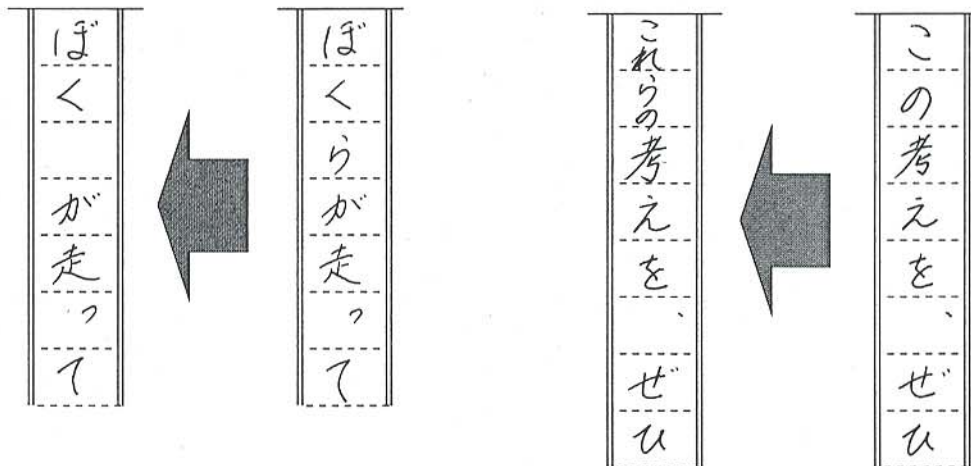 この考えを、ぜひ
これらの考えを、ぜひ
ぼくらが走って
ぼく が走って